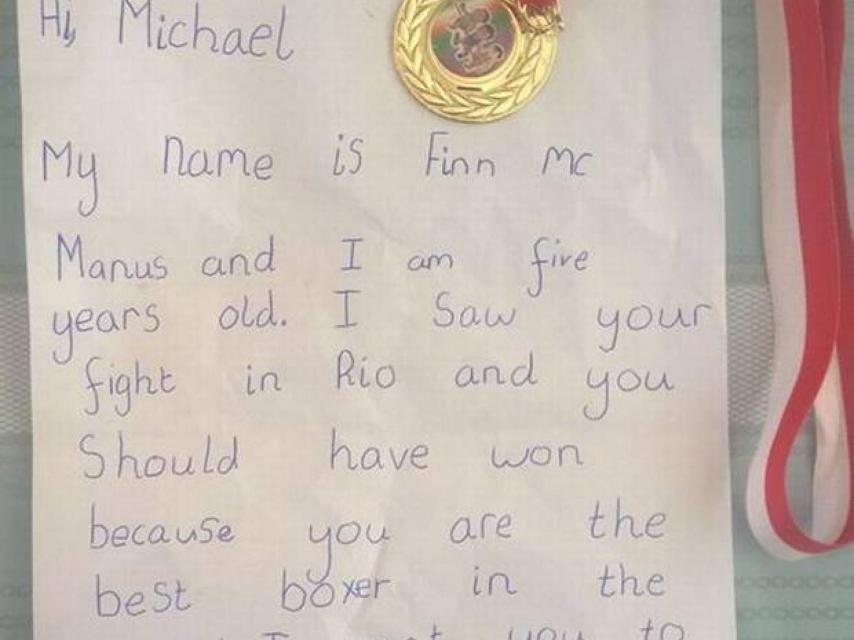 Hi, Michael
My name is Finn Mc
Manus and I am five
years old. I Saw your
fight in Rio and you
Should have won
because you are the
best boxer in the
I you to